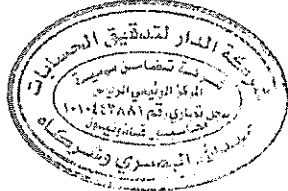 شركة الدار لتدقيق الحسابات
شركة تضامن مهنية
المركز الرئيسي الرياض
سجل تجاري رقم ١٠١٠٤٤٣٨٨١
محاسبون قانونيون
عبدالله البصري وشركاه